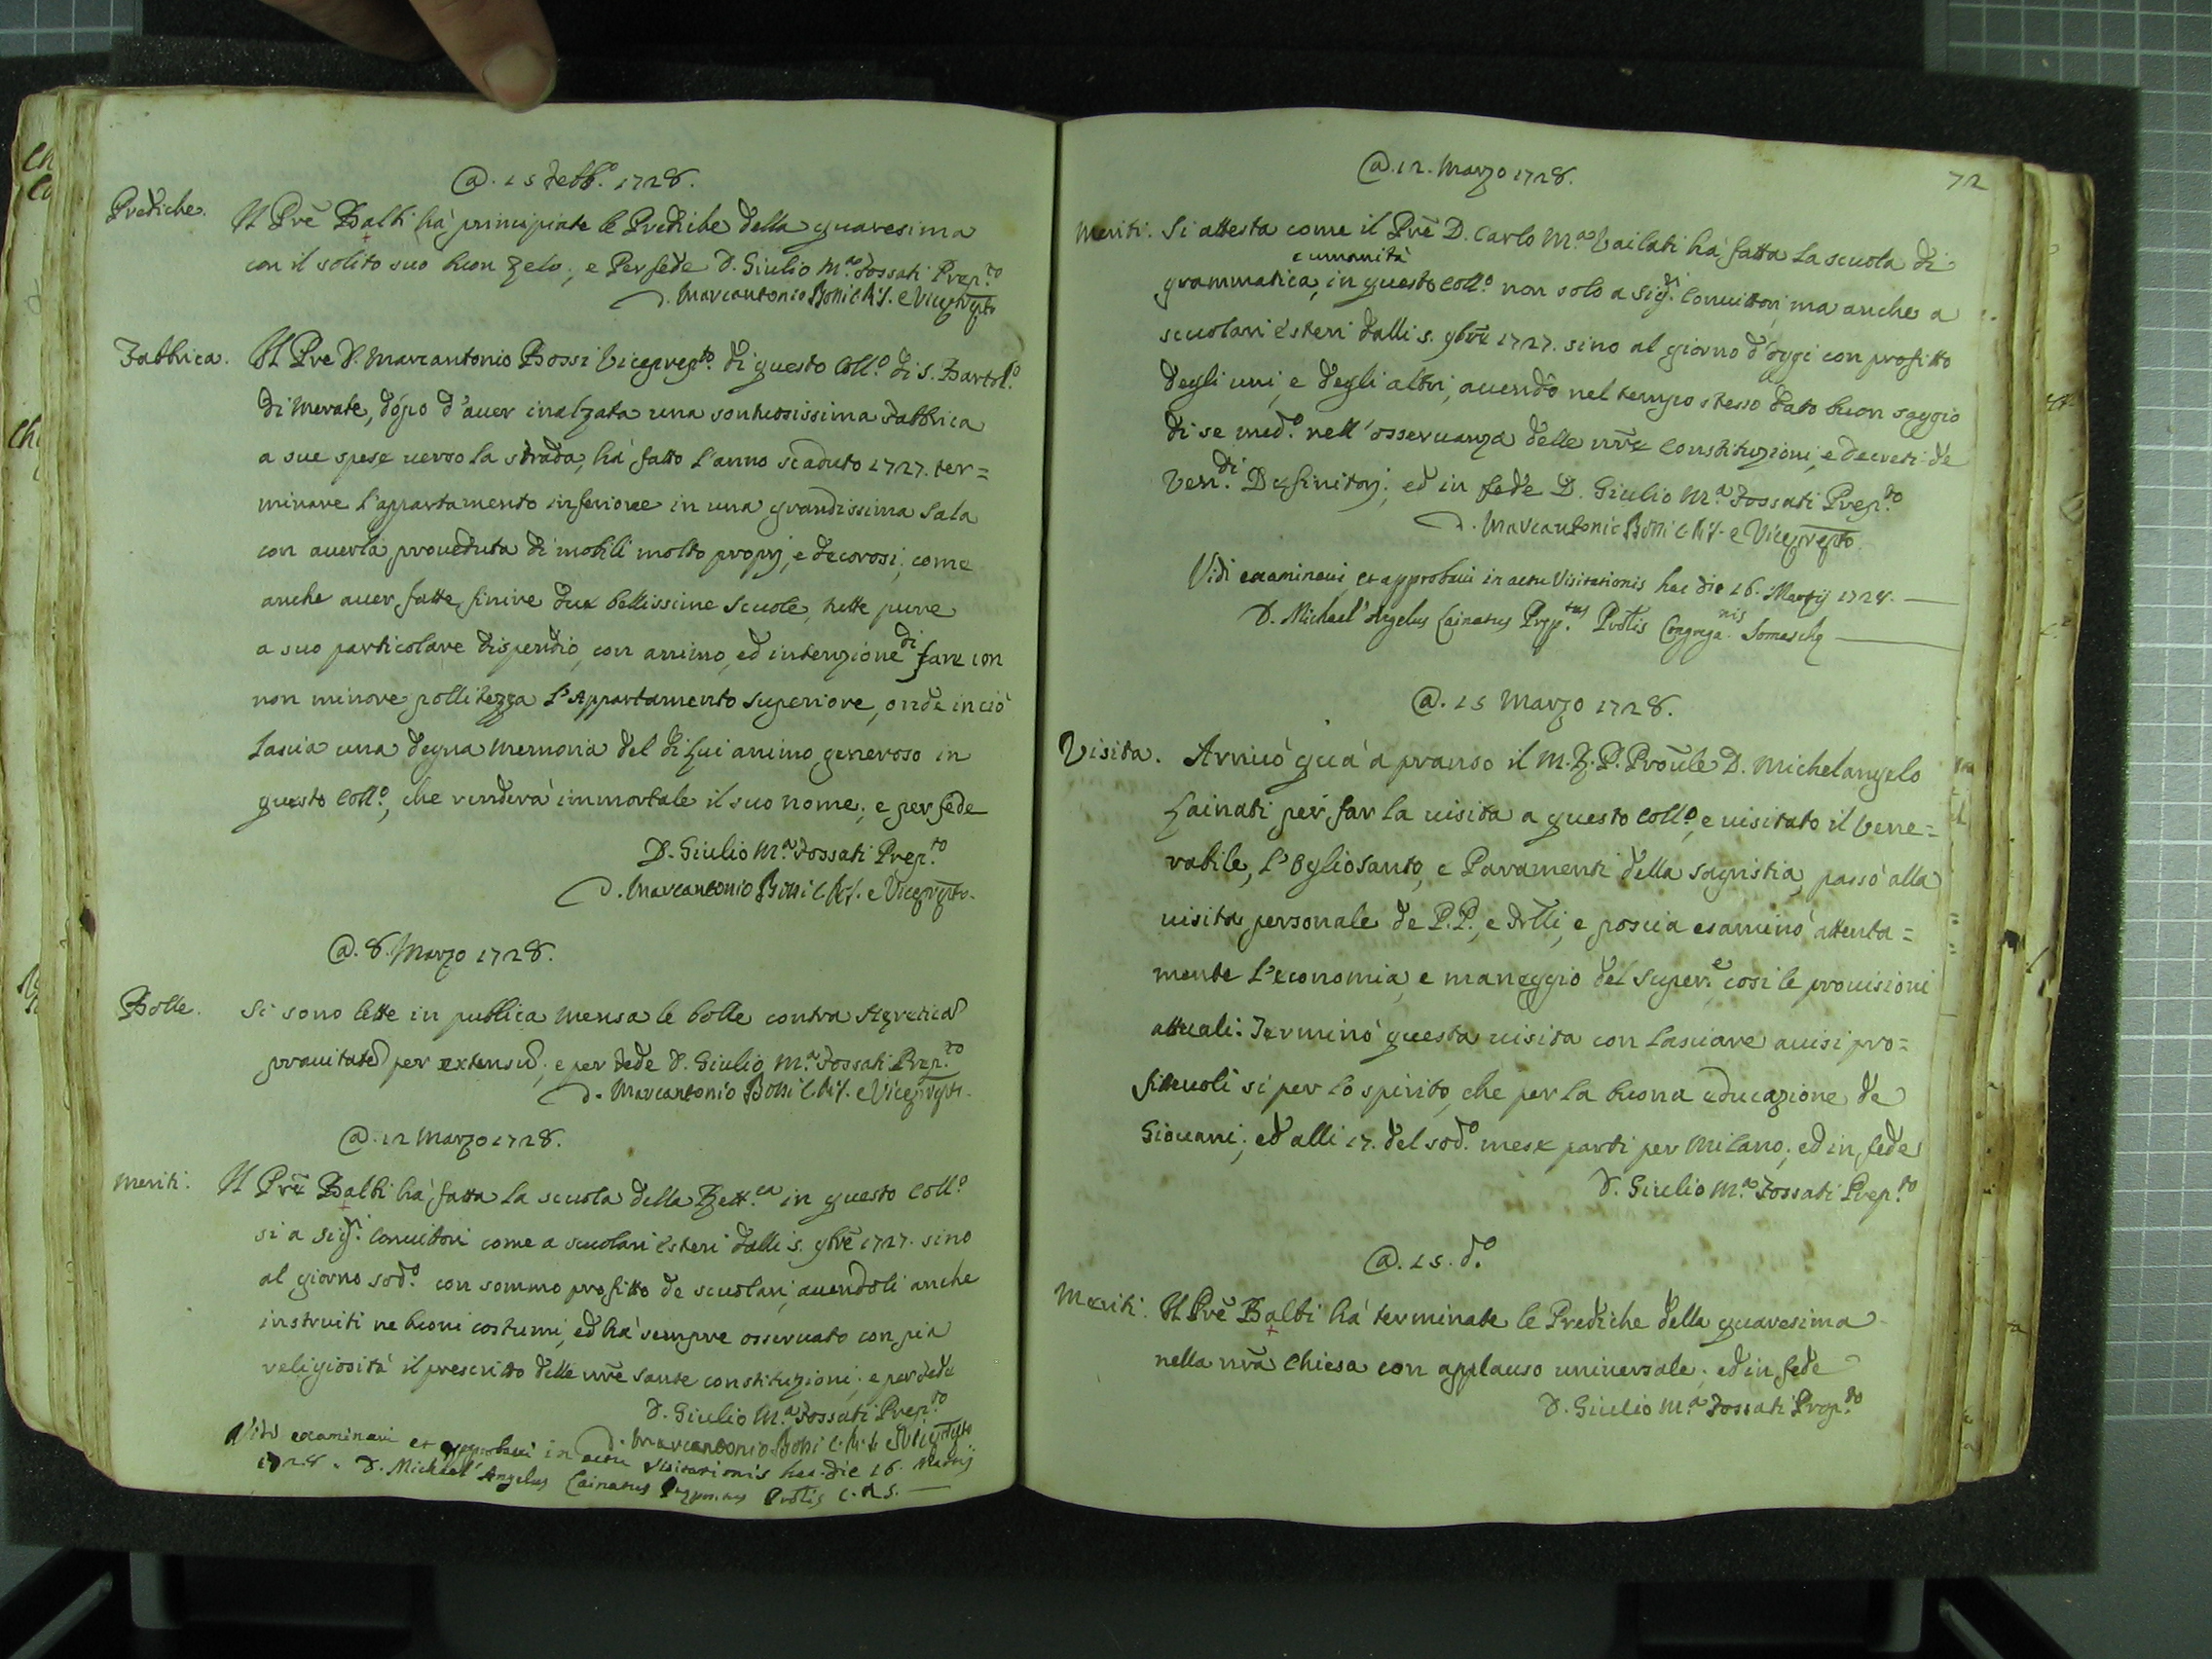 @. 15 Febb.º 1728.
Prediche. Il Prē Balbi hà principiate le Prediche della quaresima
con il solito suo buon zelo; e per fede D. Giulio M.ª Fossati Prep.to
D. Marcantonio Bossi C.R.S. e Viceprepto
Fabbrica. Il Pre D. Marcantonio Bossi Viceprep.to di questo Coll.º di S. Bartol.º
di Merate, dópo d'auer inalzata una sontuosissima Fabbrica
a sue spese uerso la strada, hà fatto l'anno scaduto 1727. ter=
minare l'appartamento inferiore in una grandissima Sala
con auerla proueduta di mobili molto proprj, e decorosi; come
anche auer fatte finire due bellissime Scuole, tutte pure
a suo particolare dispendio, con animo, ed intenzione di fare con
non minore pollitezza l'Appartamento Superiore, onde in ciò
lascia una degna memoria del di lui animo generoso in
questo Coll.º, che renderà immortale il suo nome; e per fede
D. Giulio M.ª Fossati Prep.to
D. Marcantonio Bossi C.R.S. e Viceprepto.
@. 8. Marzo 1728.
Bolle. Si sono lette in publica mensa le bolle contra
prauitate per extensu; e per fede D. Giulio M.ª Fossati Prep.to
D. Marcantonio Bossi C.R.S. e Viceprepto.
@. 12 Marzo 1728.
Meriti. Il Prē Balbi hà fatta la scuola della Rett.ca in questo Coll.º
si a Sig.ri Conuittori come a scuolari esteri dalli 5. 9brē 1727. sino
al giorno sod.º con sommo profitto de scuolari, auendoli anche
instruiti ne buoni costumi, ed hà sempre osseruato con pia
religiosità il prescritto delle nrē sante constituzioni; e per fede
D. Giulio M.ª Fossati Prep.to
D. Marcantonio Bossi C.R.S. e Viceprepto
Vidi examinaui et approbaui in actu Visitationis hac die 16. Martij
1728. D. Michael' Angelus Lainatus Prōlis C.R.S.
72
@. 12. Marzo 1728.
Meriti. Si attesta come il Prē D. Carlo M.ª Vailati hà fatta la scuola di
e umanità
grammatica, in questo Coll.º non solo a Sig.ri Conuittori, ma anche a
scuolari esteri dalli 5. 9brē 1727. sino al giorno d'oggi con profitto
degli uni, e degli altri, auendo nel tempo stesso dato buon saggio
di se med.º nell'osseruanza delle nrē Constituzioni, e decreti de
Ven.di Definitorj; ed in fede D. Giulio M.ª Fossati Prep.to
D. Marcantonio Bossi C.R.S. e Viceprepto.
Vidi examinaui, et approbaui in actu Visitationis hac die 16. Martij 1728.
D. Michael' Angelus Lainatus Prep.tus Prōlis Congrega.nis Somaschę
@. 15 Marzo 1728.
Visita. Arriuò quà a pranso il M.R.P. Proūle D. Michelangelo
Lainati per far la uisita a questo Coll.º, e uisitato il Vene=
rabile, l'Ogliosanto, e Paramenti della Sagristia, passò alla
uisita personale de P.P., e Frlli, e poscia esaminò attenta=
mente l'economia, e maneggio del Super.e così le prouisioni
attuali. Terminò questa uisita con lasciare auisi pro=
fitteuoli si per lo spirito, che per la buona educazione de
Giouani; ed alli 17. del sod.º mese partì per Milano; ed in fede
D. Giulio M.ª Fossati Prep.to
@. 15. d.º
Meriti. Il Prē Balbi hà terminate le Prediche della quaresima
nella nrā Chiesa con applauso uniuersale; ed in fede
D. Giulio M.ª Fossati Prep.to